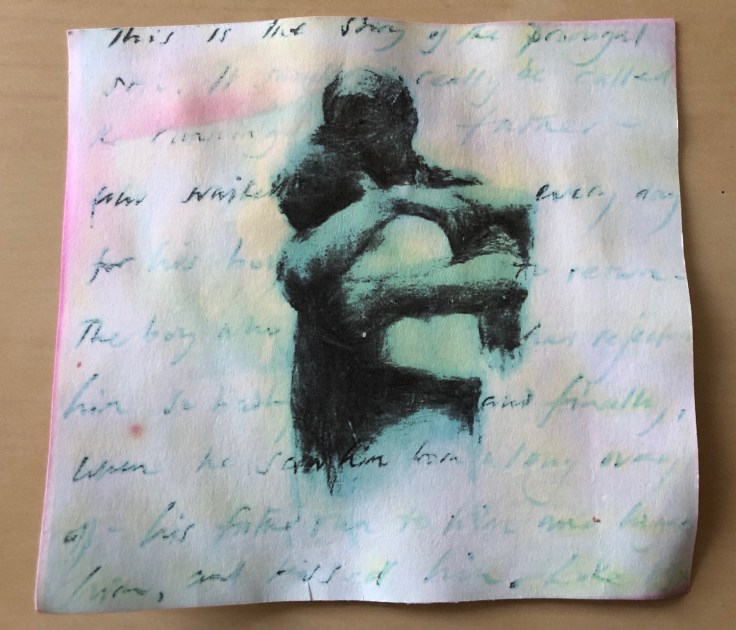 This is the story of the prodigal
son. It really be called
running father -
who waited every day
for his boy to return -
The boy who has rejected
him and finally,
when he saw him from a long way
off - his father ran to him and hugged
him, and kissed him. Luke